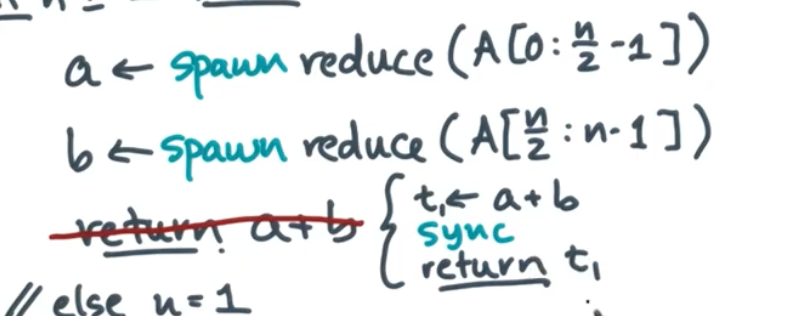 a ← spawn reduce (A[0:n/2-1])
b ← spawn reduce (A[n/2:n-1])
return a+b
t₁← a+b
sync
return t₁
// else n=1